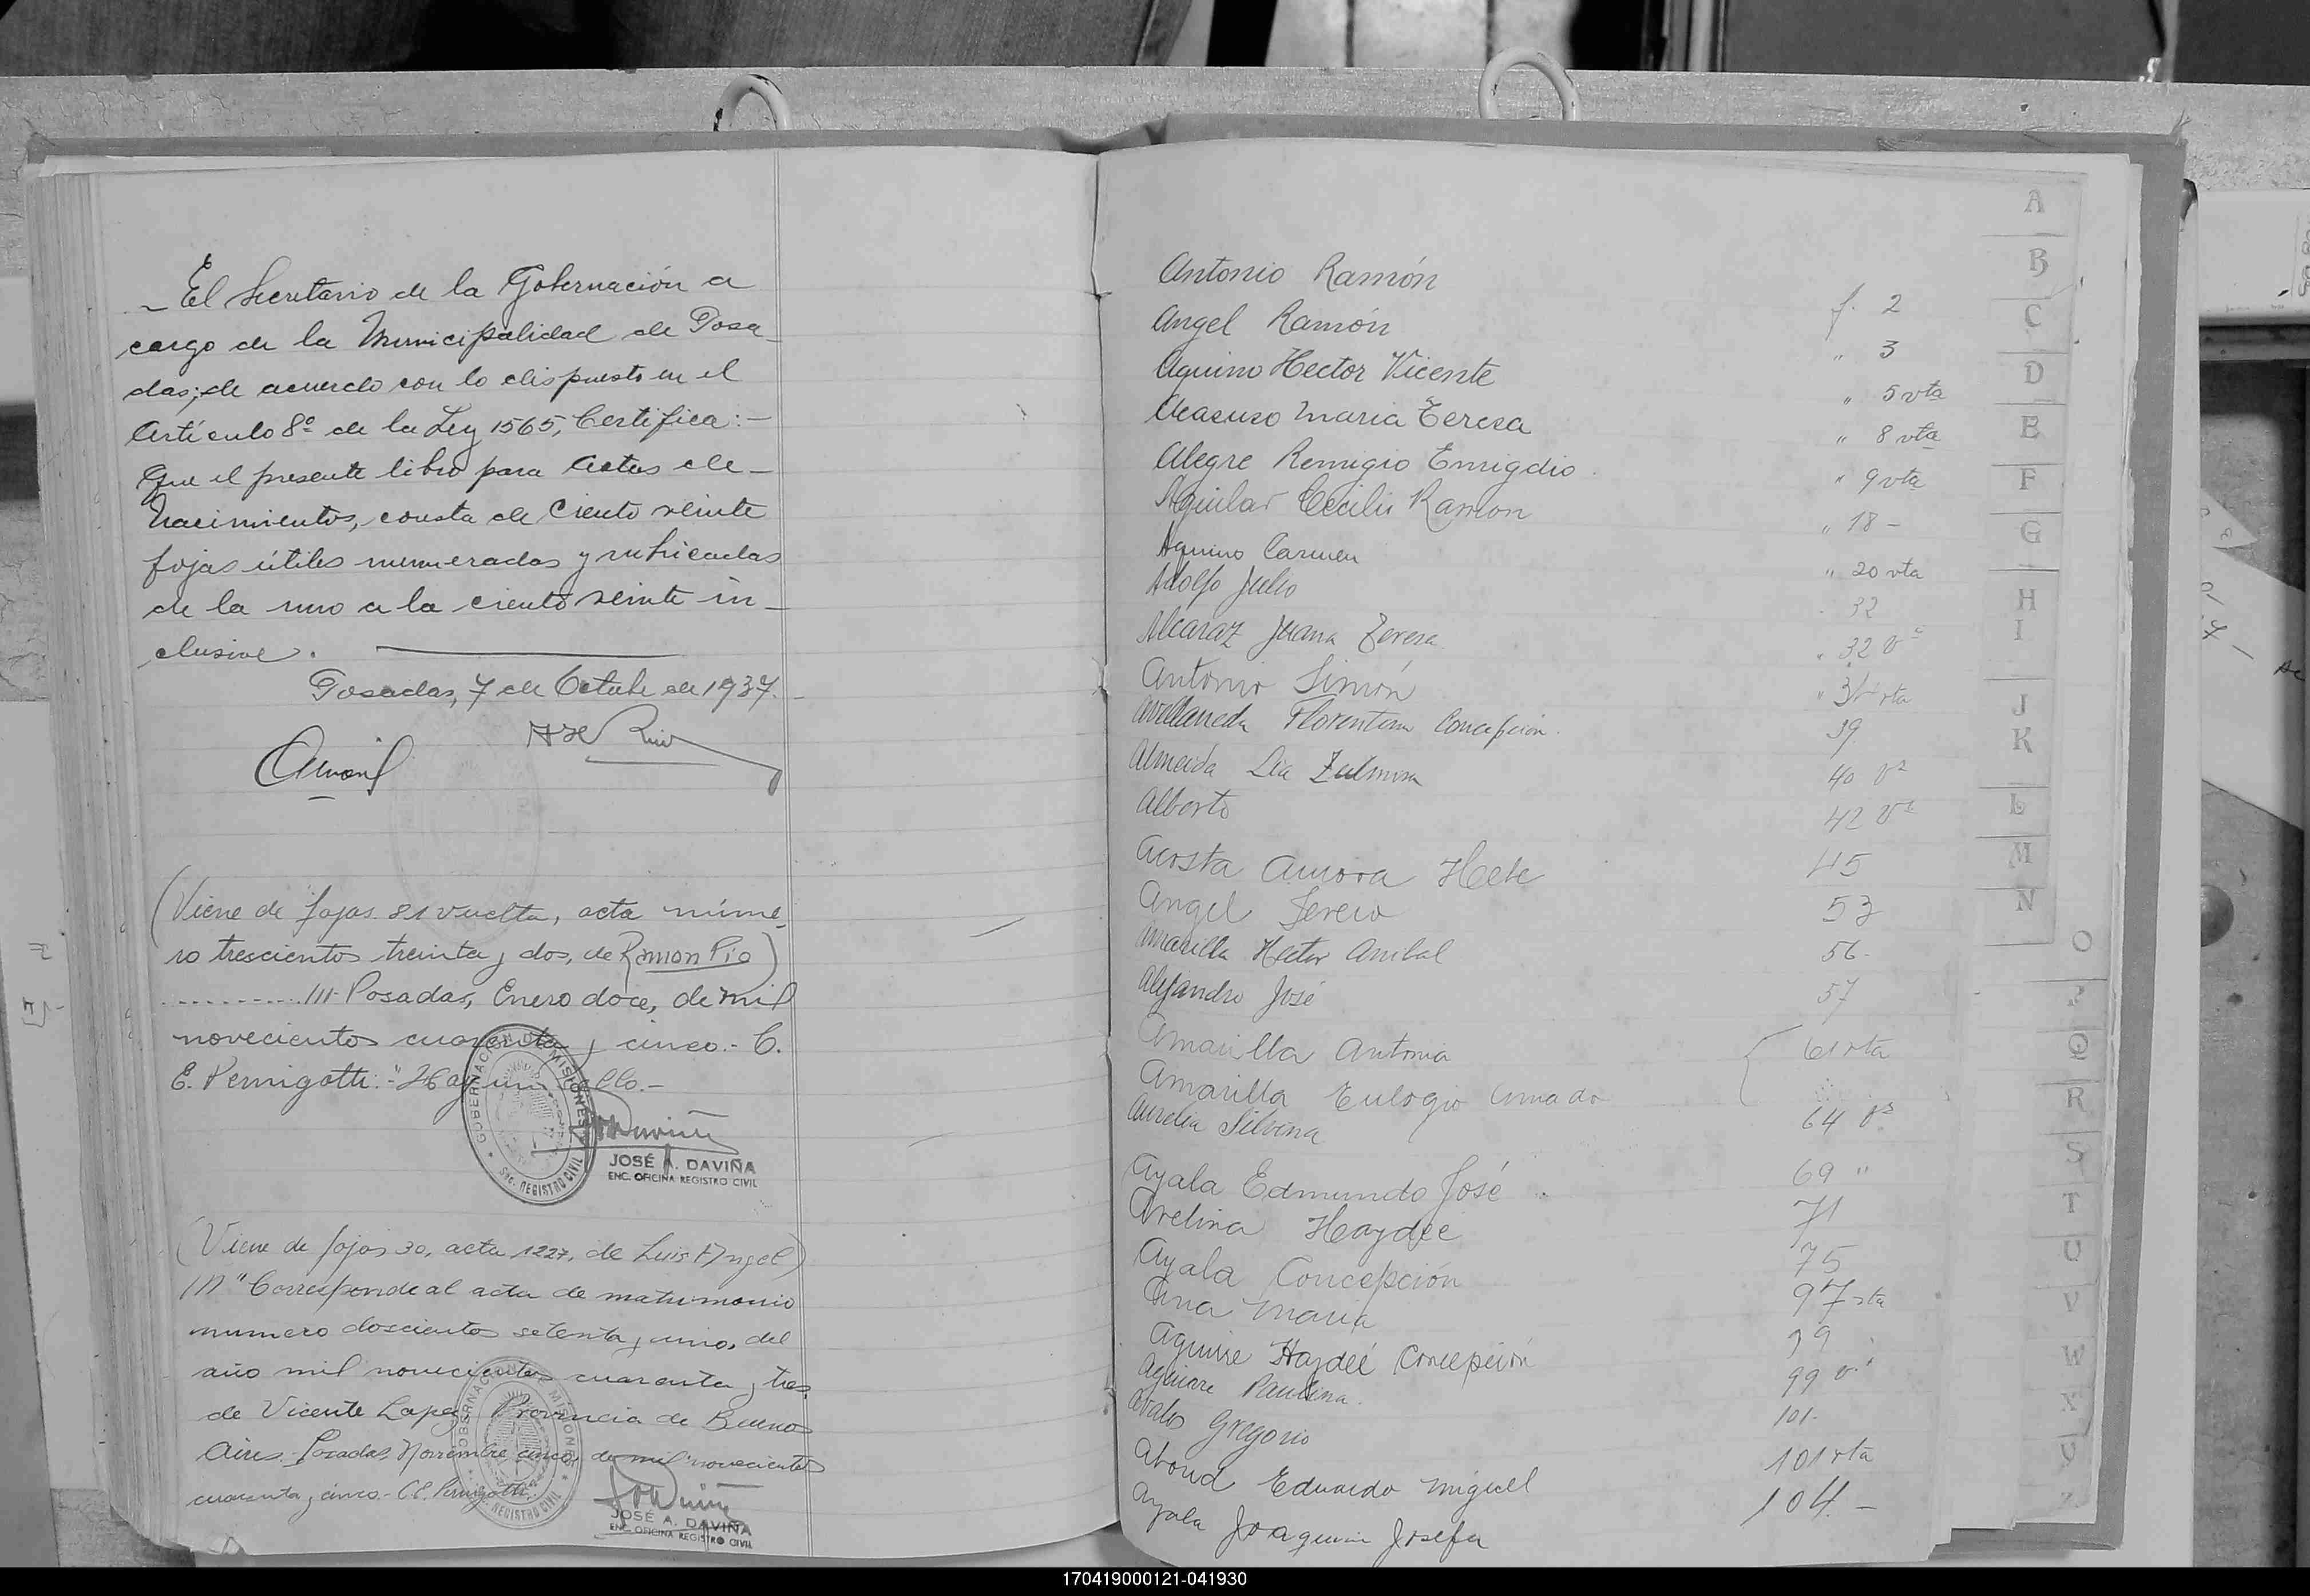 El Secretario de la Gobernación a
cargo de la Municipalidad de Posa-
das, de acuerdo con lo dispuesto en el
Artículo 8º de la Ley 1565, Certifica: -
Que el presente libro para Actas de -
Nacimientos, consta de Ciento veinte
fojas útiles numeradas y rubricadas
de la uno a la ciento veinte in-
clusive.
Posadas, 7 de Octubre de 1937.-
(Viene de fojas 81 vuelta, acta núme-
ro trescientos treinta y dos, de Ramon Pío)
.......... /// Posadas, Enero doce, de mil
novecientos cuarenta y cinco.- C.
E. Pernigotti.- "Hay un sello.-
GOBERNACION DE MISIONES
REGISTRO CIVIL
JOSÉ A. DAVIÑA
ENC. OFICINA REGISTRO CIVIL
(Viene de fojas 30, acta 1227, de Luis Angel)
/// "Corresponde al acta de matrimonio
numero doscientos setenta y uno, del
año mil novecientos cuarenta y tres,
de Vicente Lopez Provincia de Buenos
Aires.- Posadas, Noviembre cinco, de mil novecientos
cuarenta y cinco.- C.E. Pernigotti.
GOBERNACION DE MISIONES
REGISTRO CIVIL
JOSÉ A. DAVIÑA
ENC. OFICINA REGISTRO CIVIL
Antonio Ramón f. 2
Angel Ramón " 3
Aquino Hector Vicente " 5 vta
Acasuso Maria Teresa " 8 vta
Alegre Remigio Emigdio " 9 vta
Aguilar Cecilio Ramon " 18 -
Aquino Carmen " 20 vta
Adolfo Julio 32
Alcaraz Juana Teresa " 32 vª
Antonio Simón " vta
Avellaneda Florentina Concepción 39
Almeida Lia Zulmira 40 vª
Alberto 42 vª
Acosta Aurora Hebe 45
Angel 53
Amarilla Hector Anibal 56-
Alejandro José 57
Amarilla Antonia 61 vta
Amarilla Eulogio Amado
Aurelia Silvina 64 vª
Ayala Edmundo José 69 "
Avelina Haydee 71
Ayala Concepción 75
Ana Maria 97 vta
Aguirre Haydeé Concepción 99
Aguirre Paulina 99 vª
Avalos Gregorio 101-
Aboud Eduardo Miguel 101 vta
Ayala Joaquina Josefa 104.-
A
B
C
D
E
F
G
H
I
J
K
L
M
N
O
P
Q
R
S
T
U
V
W
X
Y
Z
170419000121-041930